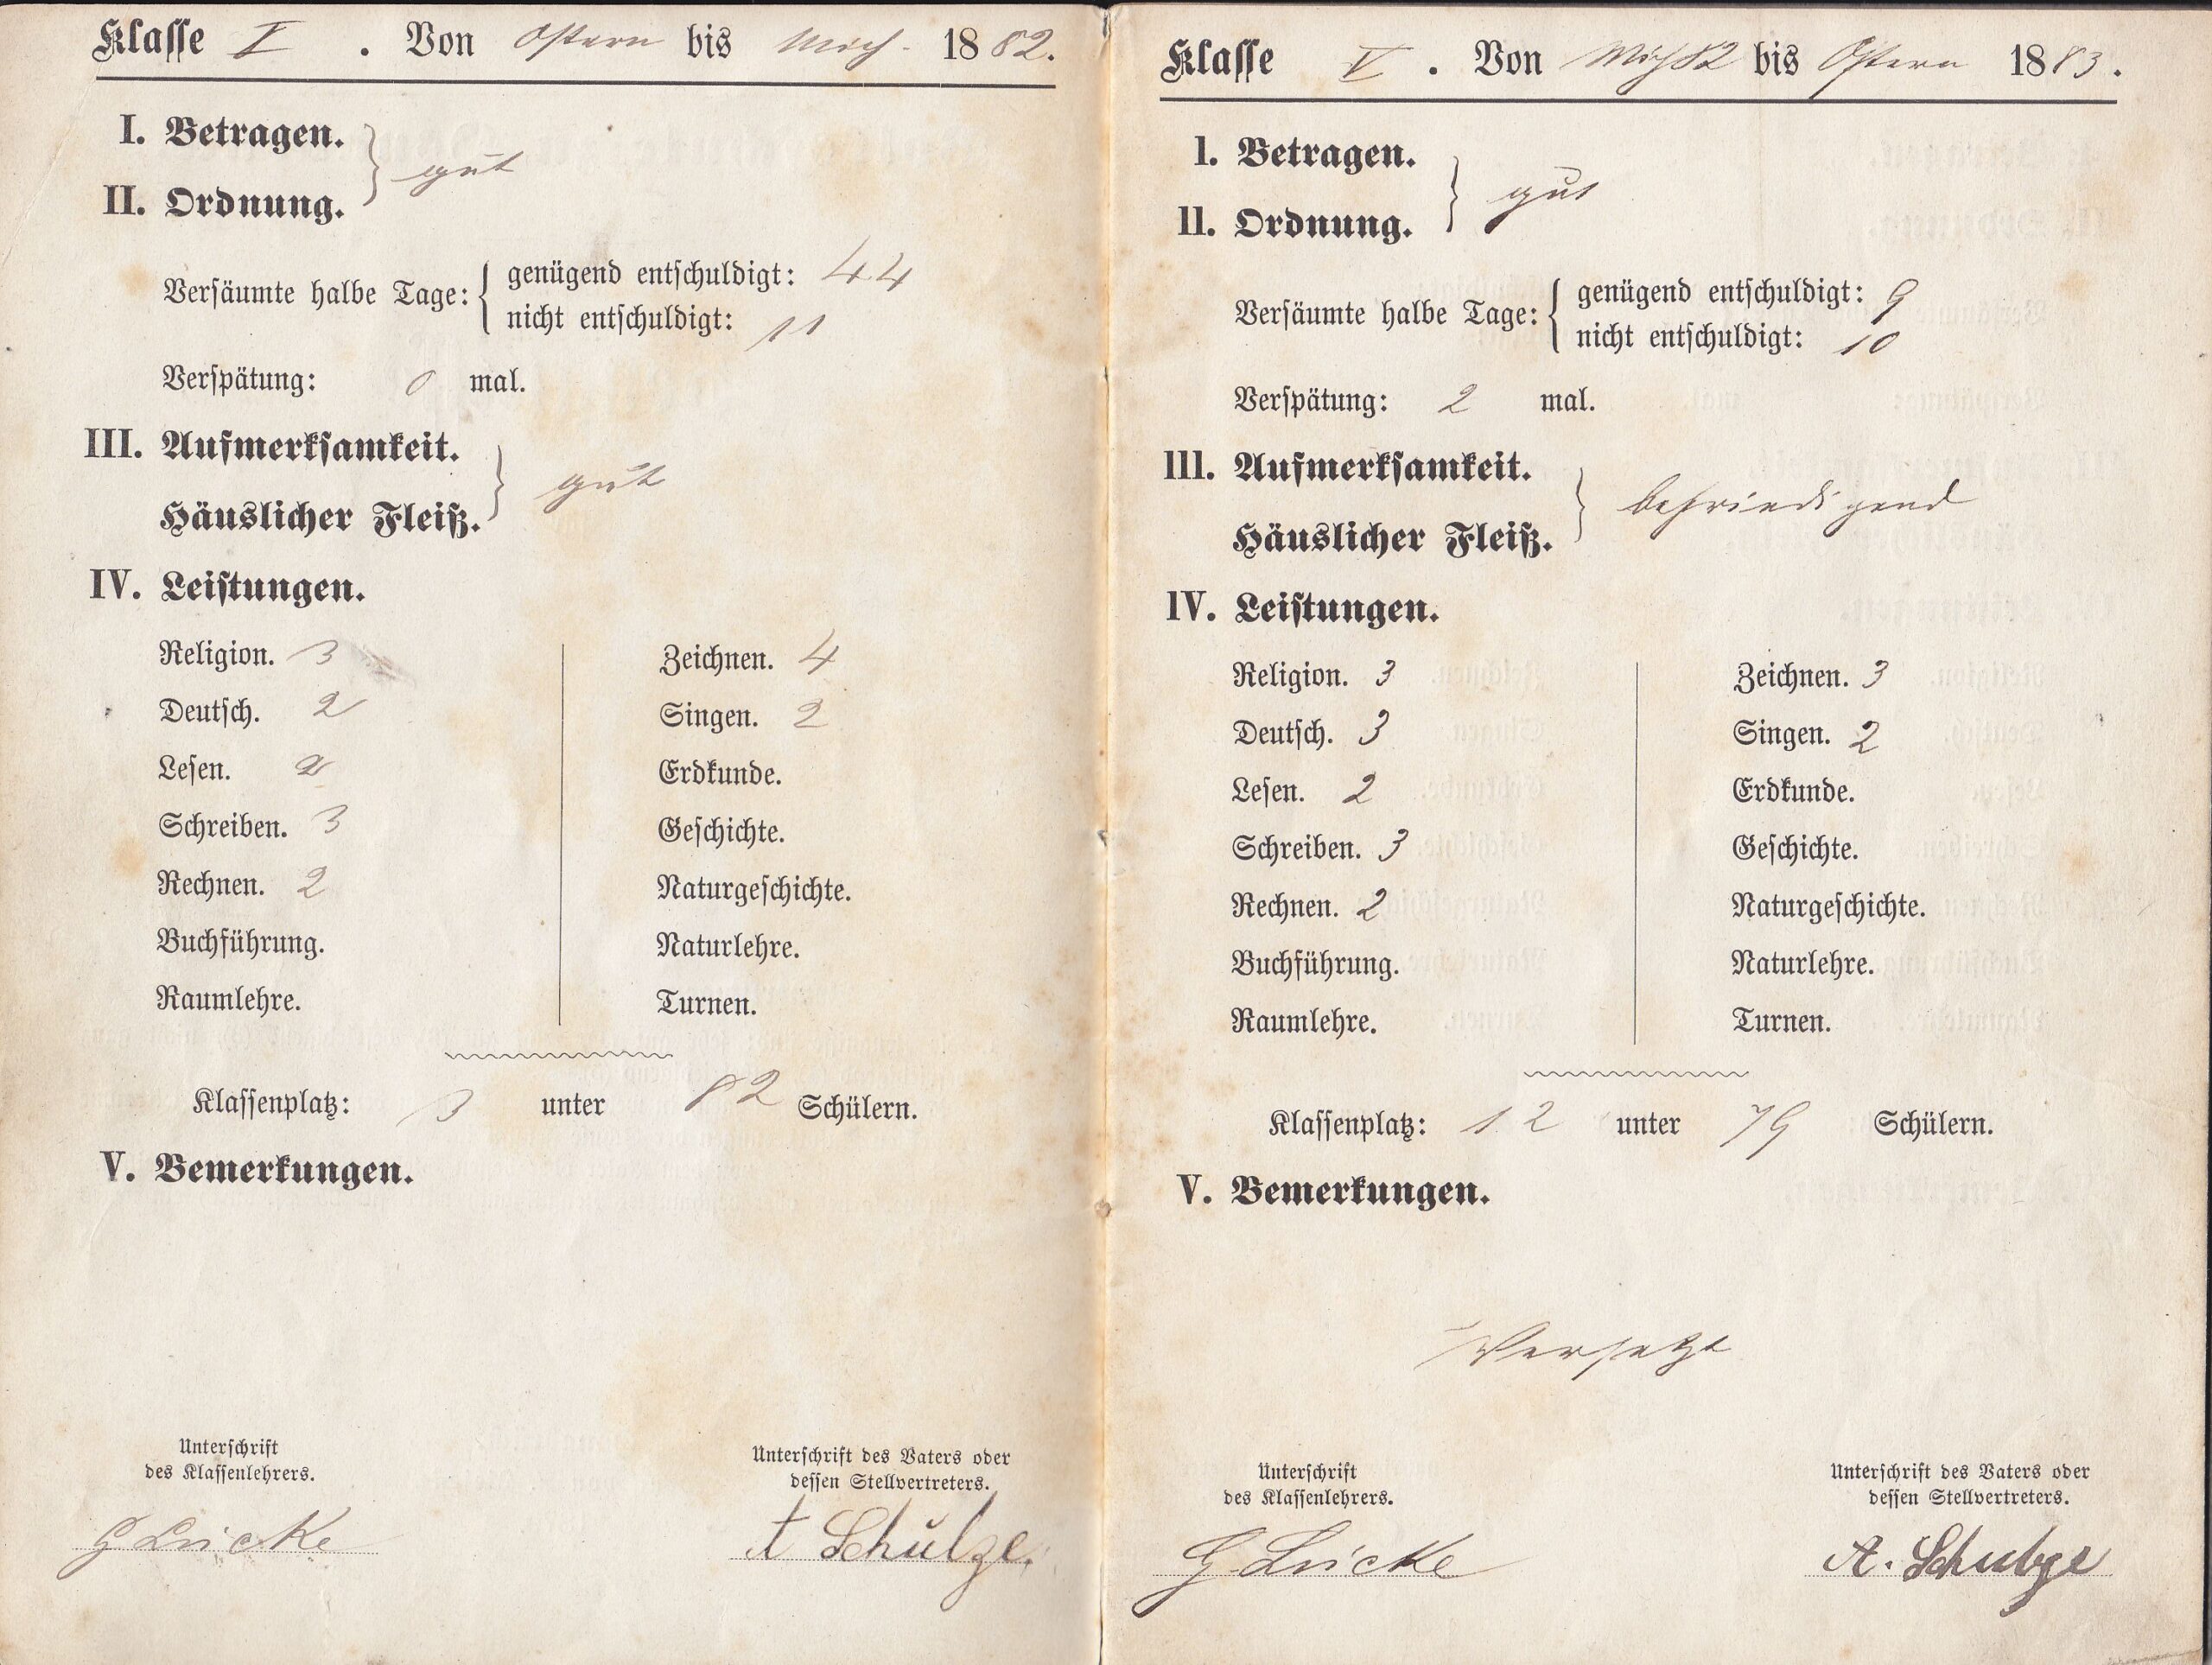 Klasse V. Von Ostern bis Mich. 1882.
I. Betragen.
gut
II. Ordnung.
Versäumte halbe Tage:
genügend entschuldigt: 44
nicht entschuldigt: 11
Verspätung: 0 mal.
III. Aufmerksamkeit.
gut
Häuslicher Fleiß.
IV. Leistungen.
Religion. 3
Deutsch. 2
Lesen. 2
Schreiben. 3
Rechnen. 2
Buchführung.
Raumlehre.
Zeichnen. 4
Singen. 2
Erdkunde.
Geschichte.
Naturgeschichte.
Naturlehre.
Turnen.
Klassenplatz: 3 unter 82 Schülern.
V. Bemerkungen.
Unterschrift
des Klassenlehrers.
G Luicke
Unterschrift des Vaters oder
dessen Stellvertreters.
A Schulze.
Klasse V. Von Mich 82 bis Ostern 1883.
I. Betragen.
gut
II. Ordnung.
Versäumte halbe Tage:
genügend entschuldigt: 9
nicht entschuldigt: 10
Verspätung: 2 mal.
III. Aufmerksamkeit.
befriedigend
Häuslicher Fleiß.
IV. Leistungen.
Religion. 3
Deutsch. 3
Lesen. 2
Schreiben. 3
Rechnen. 2
Buchführung.
Raumlehre.
Zeichnen. 3
Singen. 2
Erdkunde.
Geschichte.
Naturgeschichte.
Naturlehre.
Turnen.
Klassenplatz: 12 unter 79 Schülern.
V. Bemerkungen.
Versetzt
Unterschrift
des Klassenlehrers.
G Luicke
Unterschrift des Vaters oder
dessen Stellvertreters.
A. Schulze